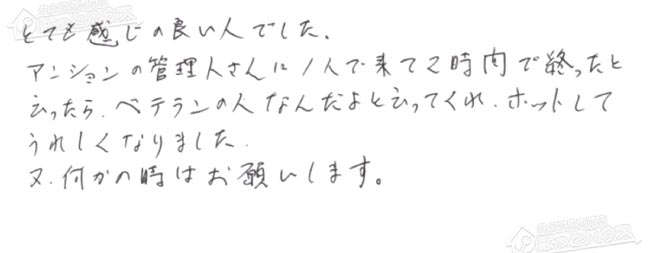 とても感じの良い人でした.
アンションの管理人さんに1人で来て2時間で終ったと
云ったら.ベテランの人なんだよと云ってくれ.ホットして
うれしくなりました.
又.何かの時はお願いします。